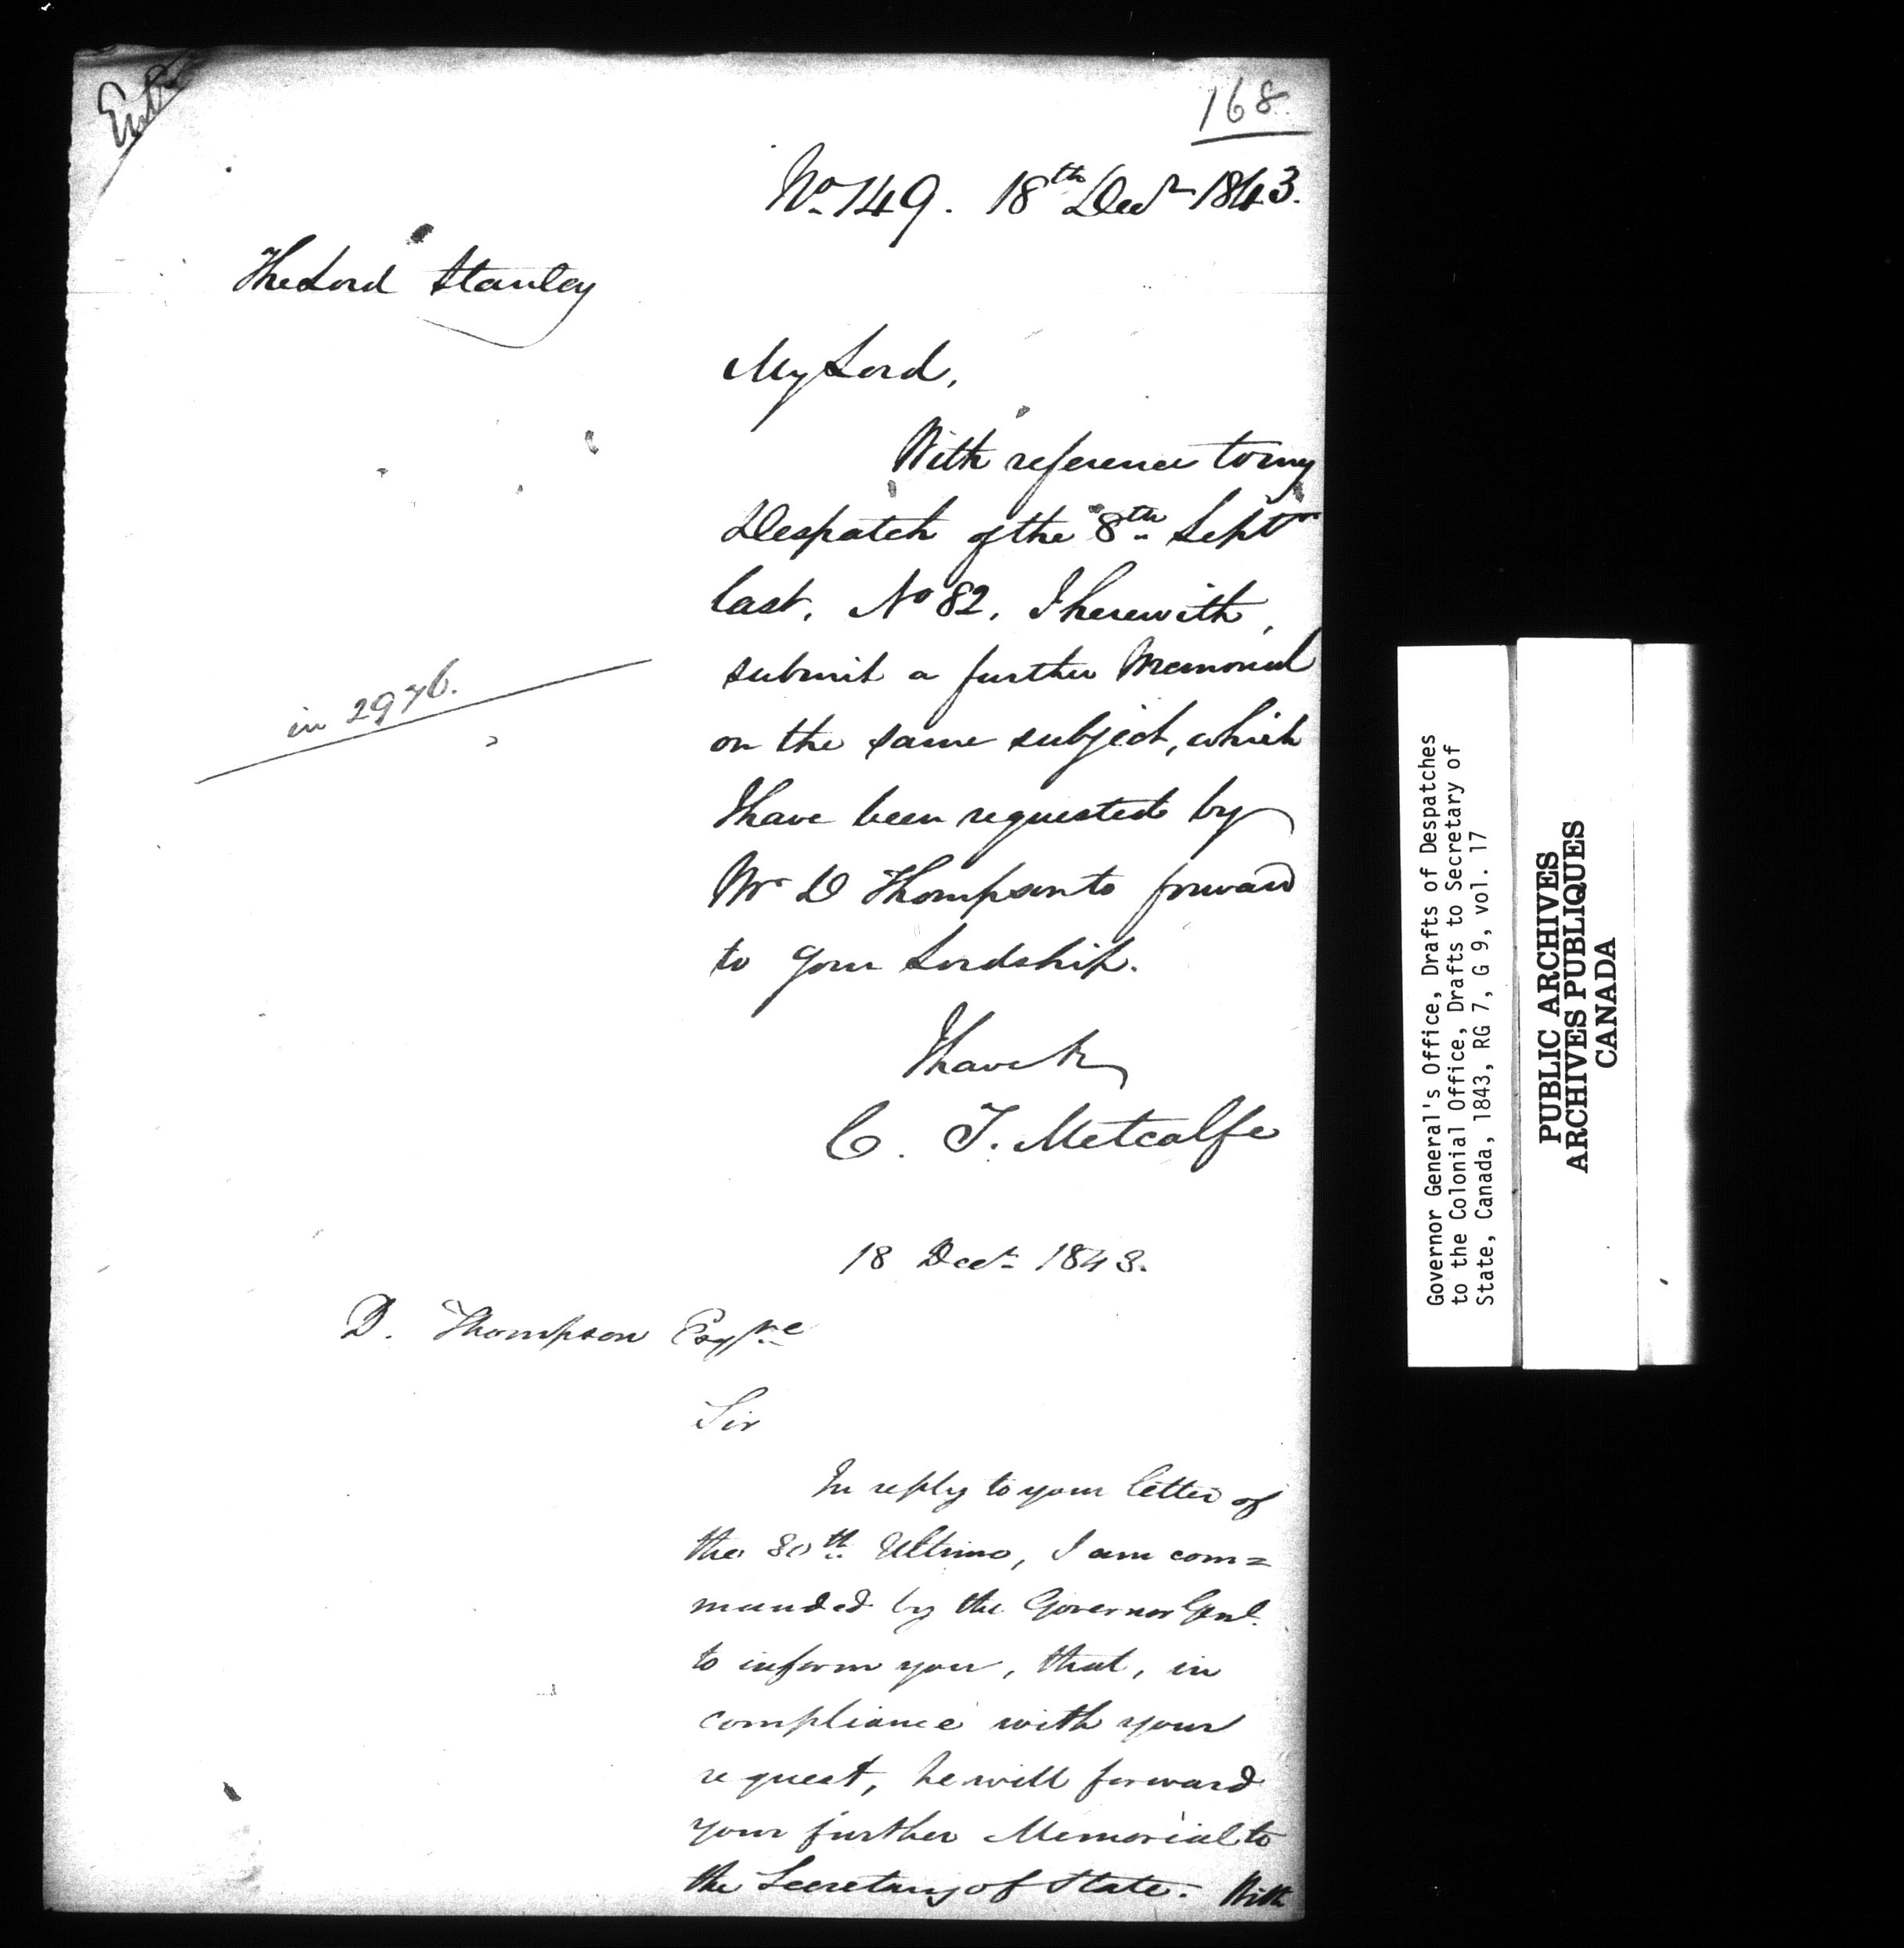 Entd
168
No 149. 18th Decr 1843.
The Lord Stanley
My Lord,
With reference to my
Despatch of the 8th Septr
last, No 82, I herewith,
submit a further Memorial
on the same subject, which
in 2976.
I have been requested by
Mr D Thompson to forward
to your Lordship.
I have &c
C. T. Metcalfe
18 Decr 1843.
D. Thompson Esqre
Sir
In reply to your letter of
the 30th Ultimo, I am com=
manded by the Governor Genl.
to inform you, that, in
compliance with your
request, he will forward
your further Memorial to
the Secretary of State. With
Governor General's Office, Drafts of Despatches
to the Colonial Office, Drafts to Secretary of
State, Canada, 1843, RG 7, G 9, vol. 17
PUBLIC ARCHIVES
ARCHIVES PUBLIQUES
CANADA